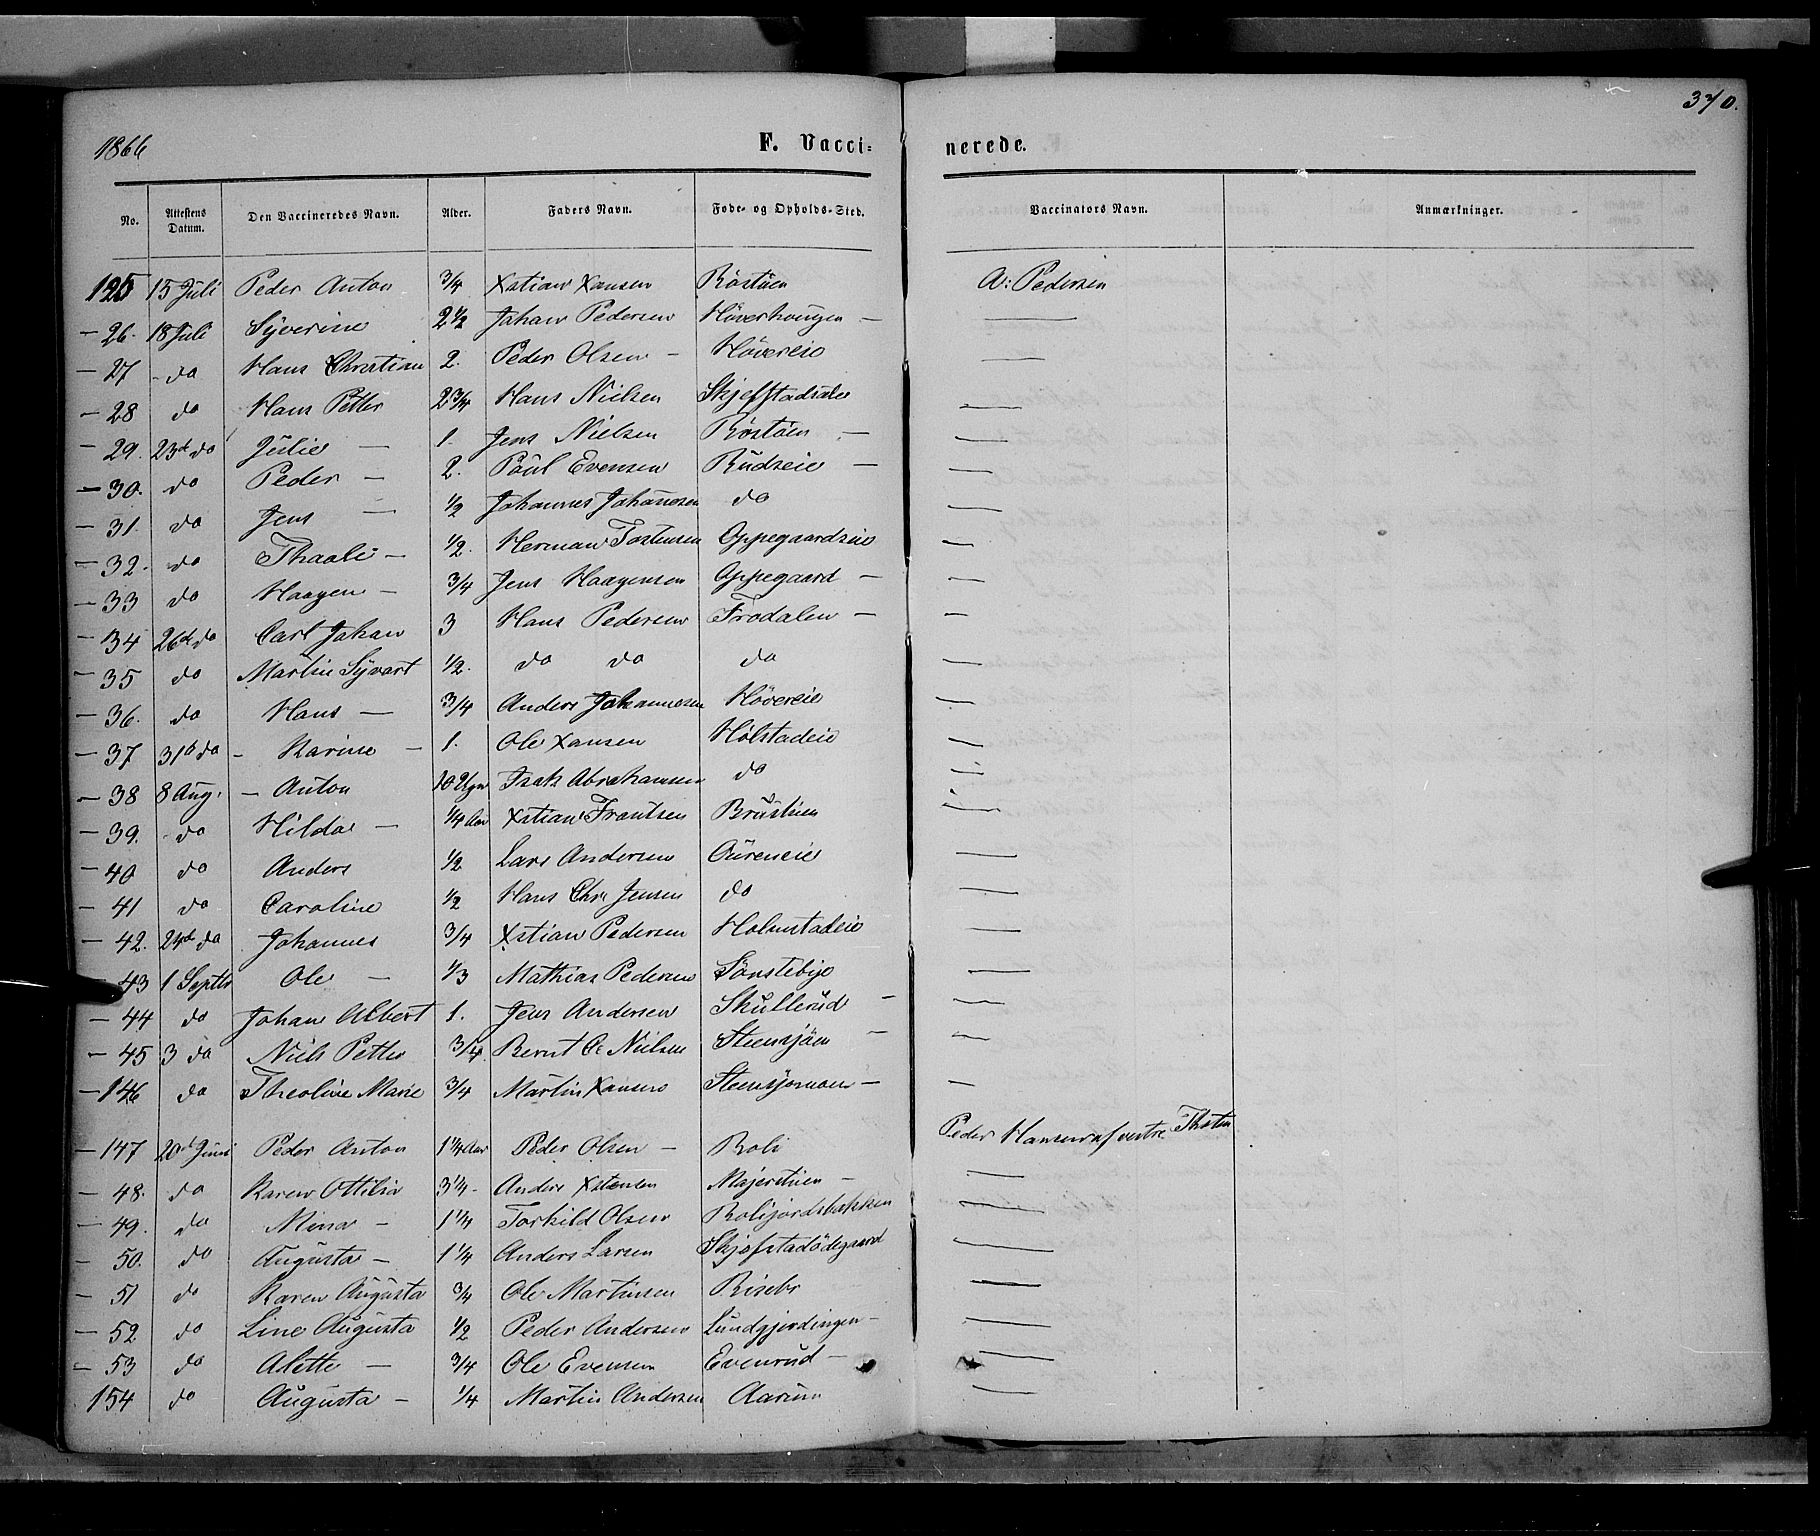 370.
1866
F. Vacci- nerede.
No. Attestens Datum. Den Vaccineredes Navn. Alder. Faders Navn. Føde- og Opholds-Sted. Vaccinators Navn. Anmærkninger.
125 15 Juli Peder Anton 3/4 Xstian Xansen Röstöen A: Pedersen
- 26. 18 Juli Syverine 2 1/2 Johan Pedersen Höverhaugen - —
- 27 - do Hans Christian 2. Peder Olsen - Hövereie —
- 28 do Hans Petter 2 3/4 Hans Nielsen —
- 29. 23d do Julie - 1. Jens Nielsen Röstöen - —
- 30. do Peder - 2. Paul Evensen Rudseie - —
- 31. do Jens - 1/2 Johannes Johannesen do —
- 32. do Thaale - 1/2. Herman Tostensen Oppegaardseie —
- 33 do Haagen - 3/4 Jens Haagensen Oppegaard - —
- 34 26d do Carl Johan 3 Hans Pedersen Frodalen - —
- 35 do Martin Syvert 1/2. do do do —
- 36. do Hans - 3/4 Anders Johannesen Hövereie —
- 37 31d do - Karine - 1. Ole Xansen Holstadeie —
- 38 8 Aug. - Anton 10 Uger Isak Abrahamsen do —
- 39. - do Hilda - 1/4 Aar Xstian Frantsen Brustuen —
- 40 do Anders 1/2 Lars Andersen Aureneie —
- 41 do Caroline 1/2 Hans Chr. Jensen do —
- 42. 24d do Johannes 3/4 Xstian Pedersen Holmstadeie —
- 43 1 Septbr Ole - 1/3 Mathias Pedersen Sönstebye —
- 44 do Johan Albert 1. Jens Andersen Skullerud - —
- 45 3 do Niels Petter 3/4. Bernt O. Nielsen Steensjöen - —
- 146 do Theoline Marie 3/4 Martin Xansen Steensjomoen - —
- 147 20d Juni Peder Anton 1 1/4 Aar Peder Olsen - Roli Peder Hansen af vestre Thoten
- 48. do Karen Ottilia 3 1/4. Anders Xstensen Majerstuen - —
- 49. do Mina - 1 1/4 Torkild Olsen Rolijordsbakken —
- 50. do Augusta - 1 1/4 Anders Larsen Skjefstadödegaard —
- 51 do Karen Augusta 3/4 Ole Martinsen Risebr —
- 52. do Line Augusta 1/2 Peder Andersen Lundgjerdingen - —
- 53 do Alette - 3/4 Ole Evensen Evenrud - —
154 do Augusta - 1/4 Martin Andersen Aarum —